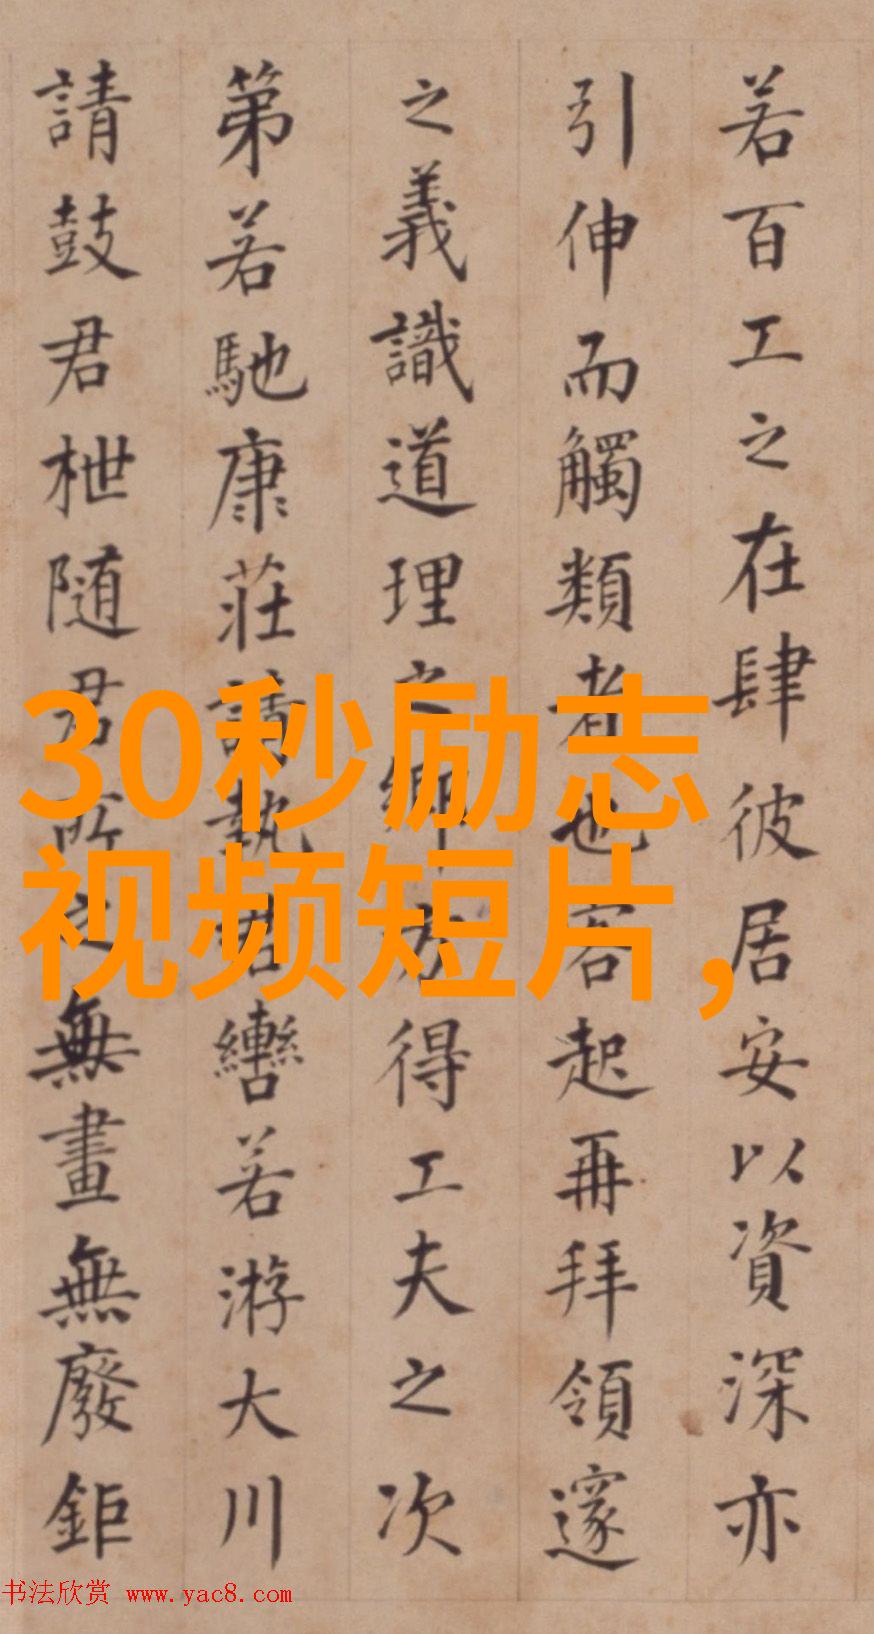 若百工之在肆彼居安以資深亦
引伸而觸類者也客起再拜領邃
之義識道理之鄉方得工夫之次
第若馳康莊請執君轡若游大川
請鼓君枻随君所之無畫無廢鉅
30秒励志
视频短片，
书法欣赏 www.yac8.com